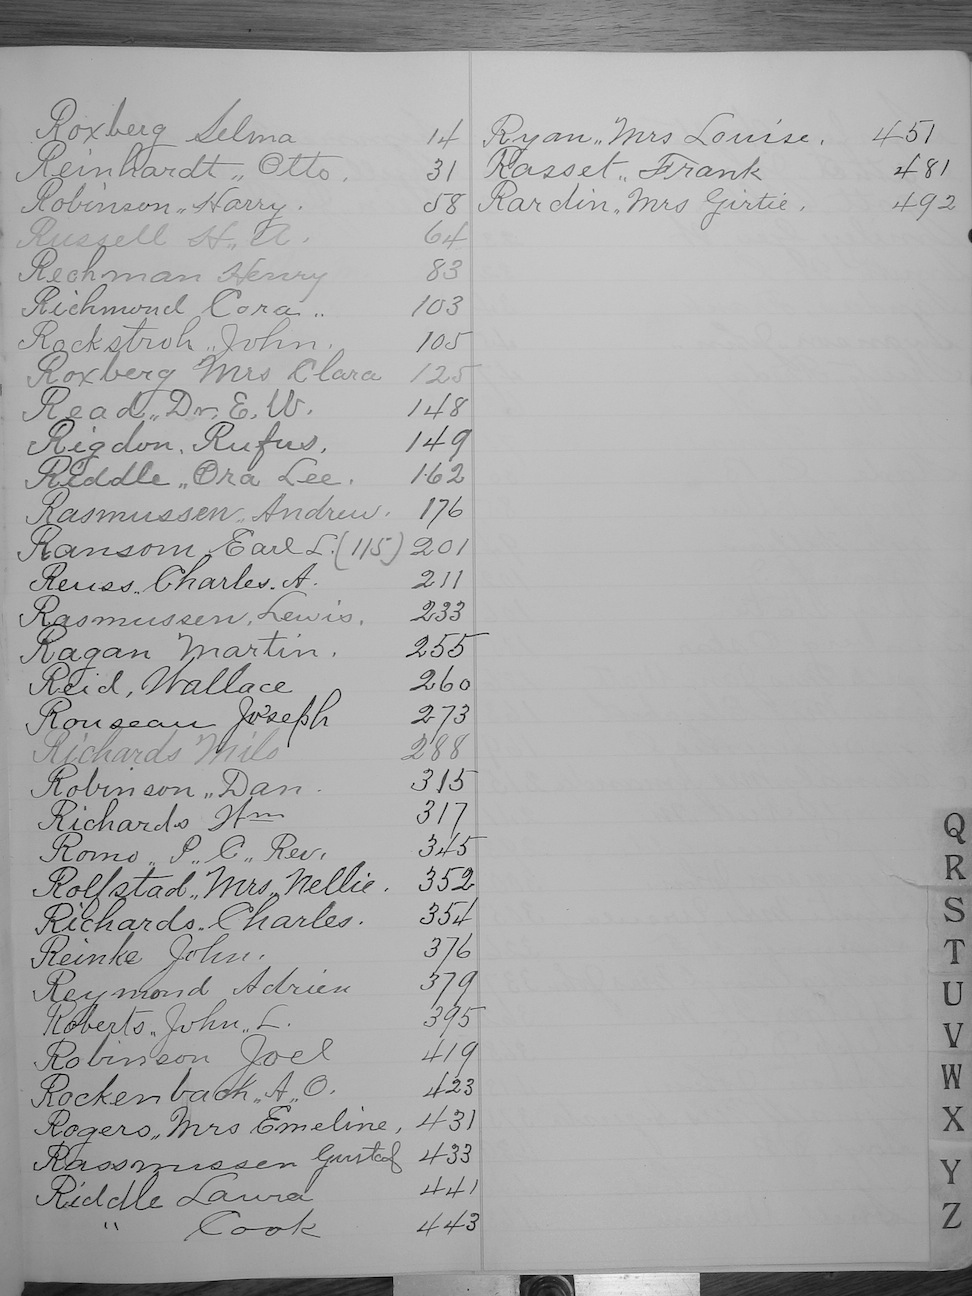 Roxberg Selma 14
Reinhardt,, Otto. 31
Robinson,, Harry. 58
Russell H,, A. 64
Rechman Henry 83
Richmond Cora,, 103
Rockstroh,, John. 105
Roxberg Mrs Clara 125
Read,, Dr. E. W. 148
Rigdon, Rufus. 149
Riddle,, Ora Lee. 162
Rasmussen,, Andrew. 176
Ransom, Earl L. (115) 201
Reuss,, Charles. A. 211
Rasmussen, Lewis. 233
Ragan Martin. 255
Reid, Wallace 260
Rouseau Joseph 273
Richards Milo 288
Robinson,, Dan. 315
Richards Wm 317
Romo,, P,, C,, Rev. 345
Rolfstad,, Mrs,, Nellie. 352
Richards,, Charles. 354
Reinke John. 376
Reymond Adrien 379
Roberts,, John,, L. 395
Robinson Joel 419
Rockenback,, A,, O. 423
Rogers,, Mrs Emeline, 431
Rassmussen Gustaf 433
Riddle Laura 441
" Cook 443
Ryan,, Mrs Louise. 451
Rasset,, Frank 481
Rardin,, Mrs Girtie. 492
Q
R
S
T
U
V
W
X
Y
Z